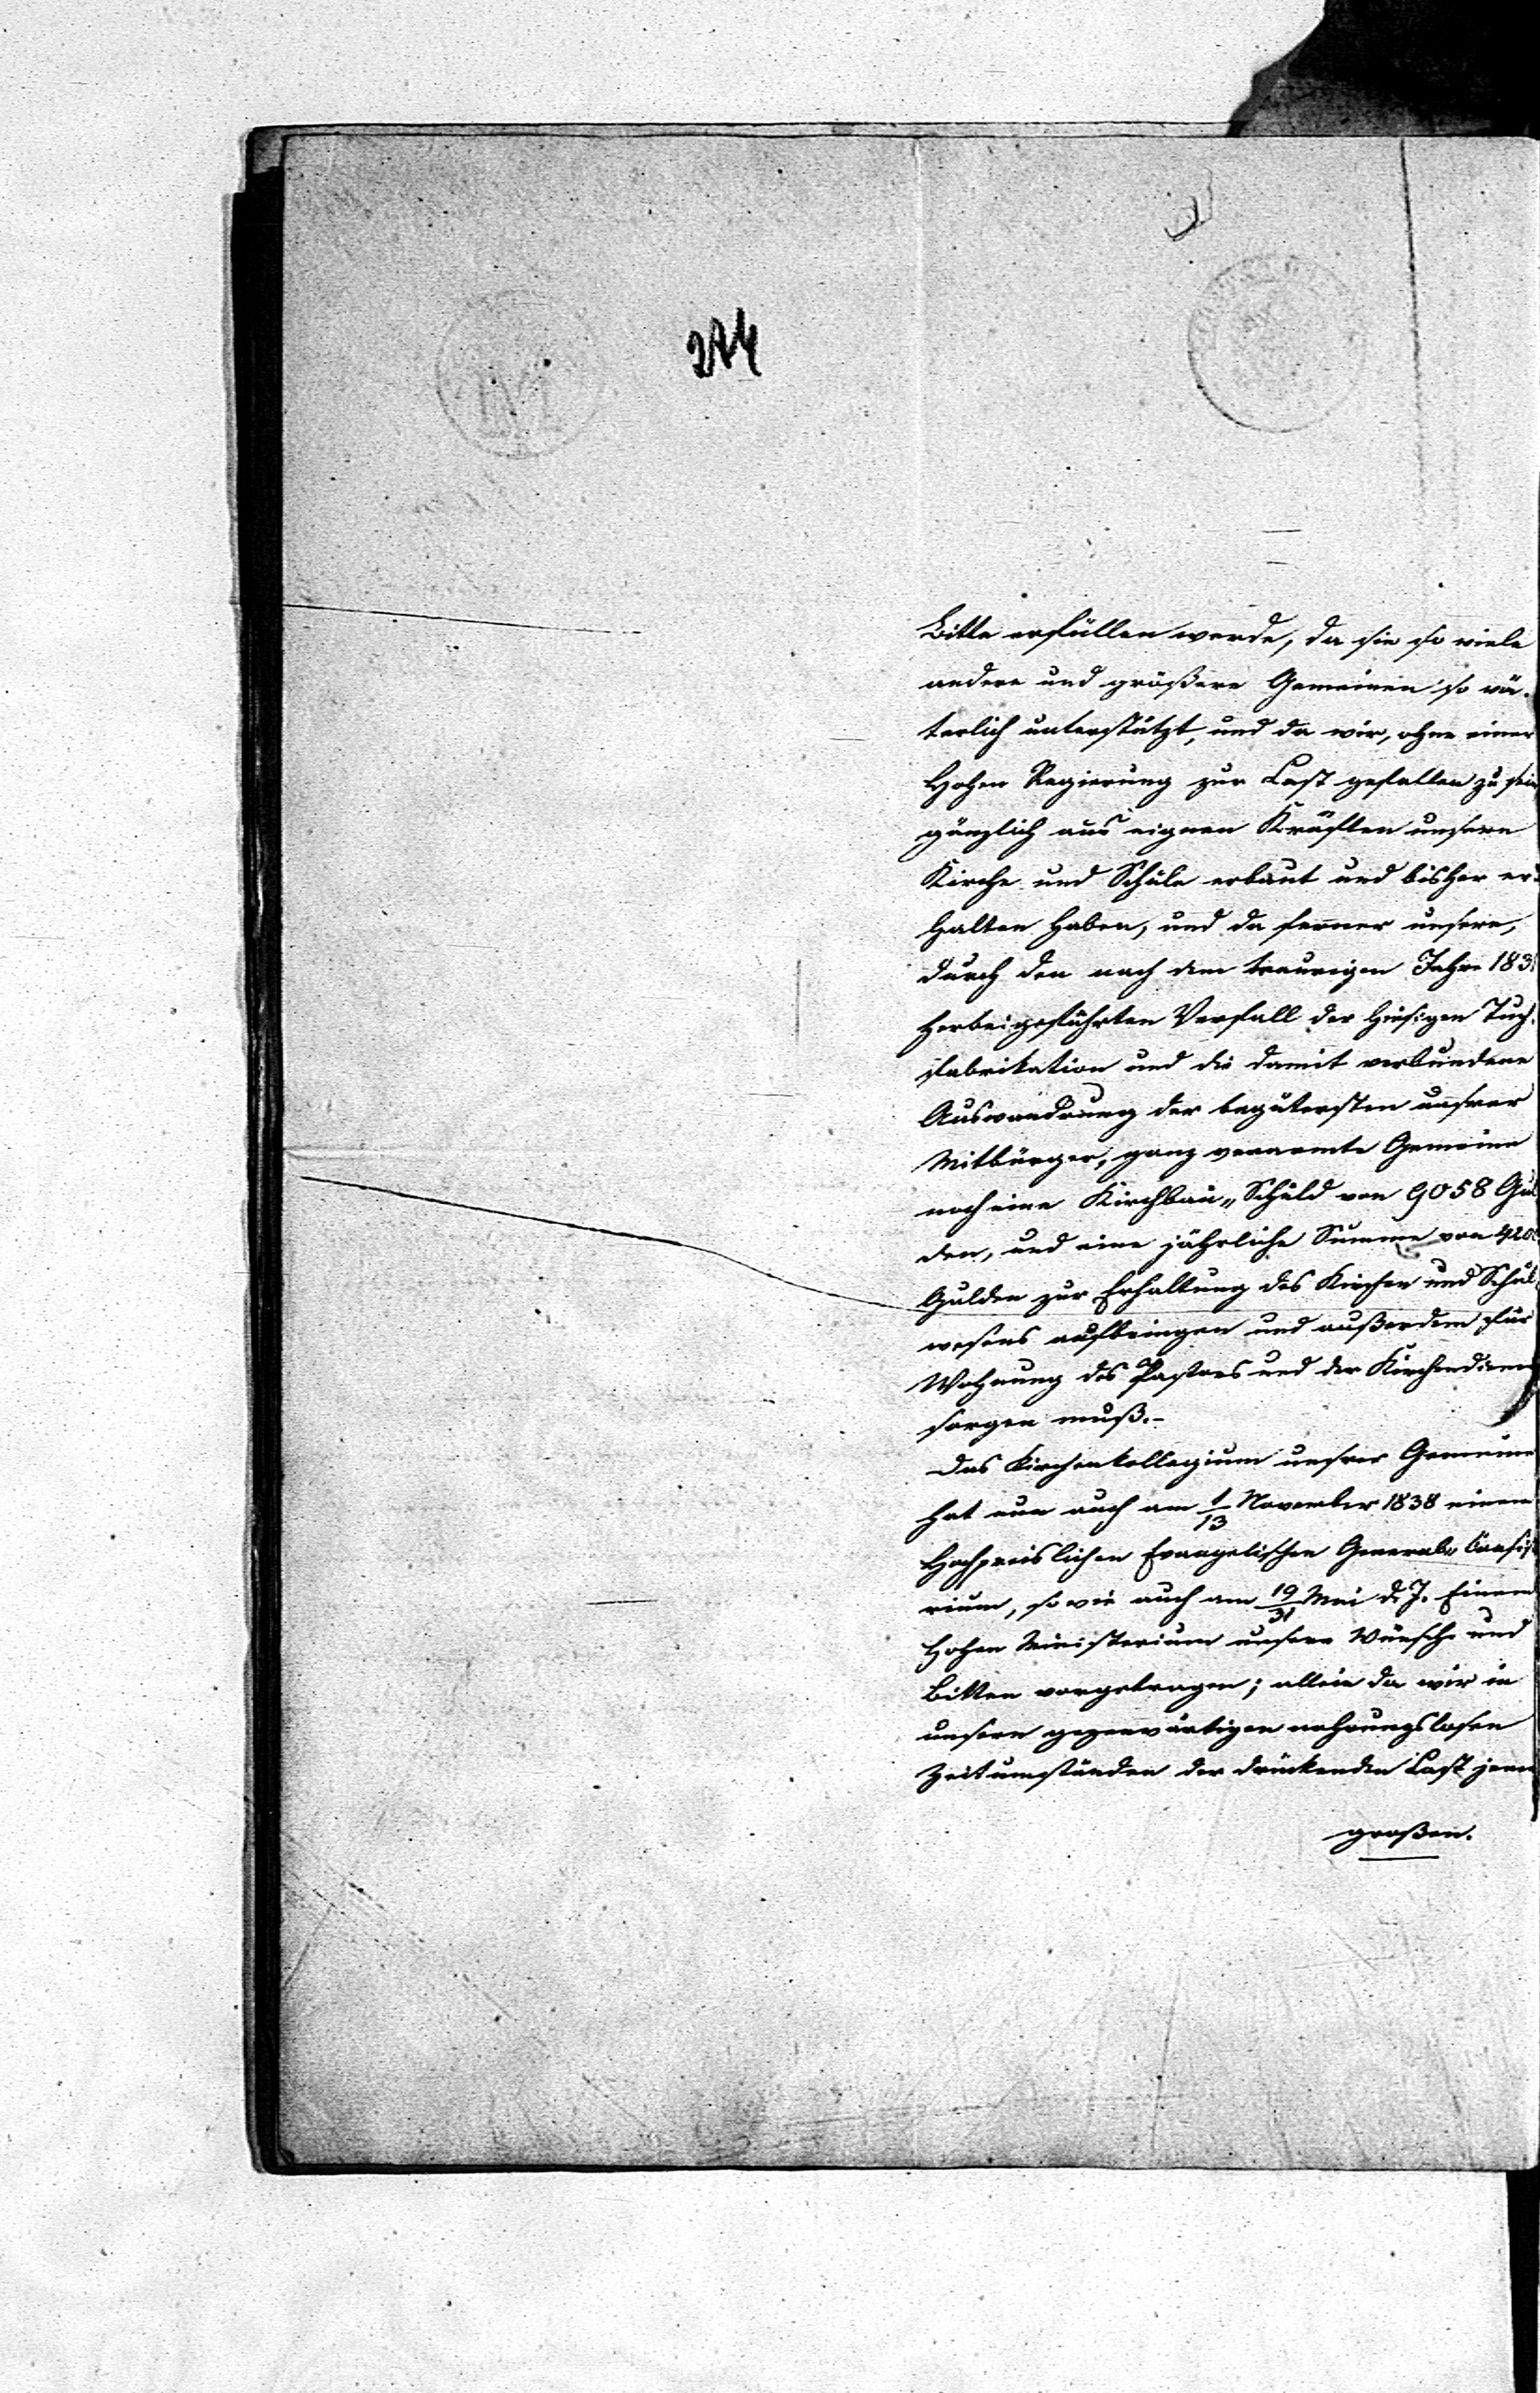 224
Bitte erfüllen werde, da sie so viele
andere und größere Gemeinen so vä-
terlich unterstützt, und da wir, ohne einer
Hohen Regierung zur Last gefallen zu sein
gänzlich aus eignen Kräften unsere
Kirche und Schule erbaut und bisher er-
halten haben, und da ferner unsere,
durch den nach dem traurigen Jahre 183
herbeigeführten Verfall der hiesigen Tuch-
fabrikation und die damit verbundene
Auswandrung der begütersten unsrer
Mitbürger, ganz verarmte Gemeine
noch eine Kirchbau„Schuld von 9058 Gul
den, und eine jährliche Summe von 420
Gulden zur Erhaltung des Kirchen und Schul
wesens aufbringen und außerdem für
Wohnung des Pastors und der Kirchendiener
sorgen muß.-
Das Kirchenkollegium unsrer Gemeine
hat nun auch am 1/13 November 1838 einem
Hochpreislichen Evangelischen General„Consist
rium, so wie auch am 19/31 Mai d. J. Einem
Hohen Ministerium unsere Wünsche und
Bitten vorgetragen; allein da wir in
unsern gegenwärtigen nahrungslosen
Zeitumständen der drückenden Last jener
großen.